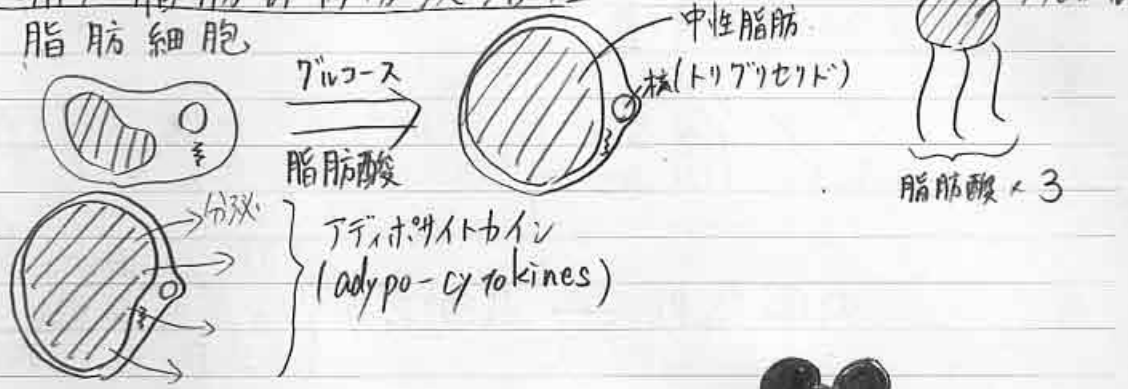 脂肪細胞
グルコース
脂肪酸
中性脂肪
核(トリグリセリド)
脂肪酸×3
分泌
アディポサイトカイン
(adypo-cytokines)